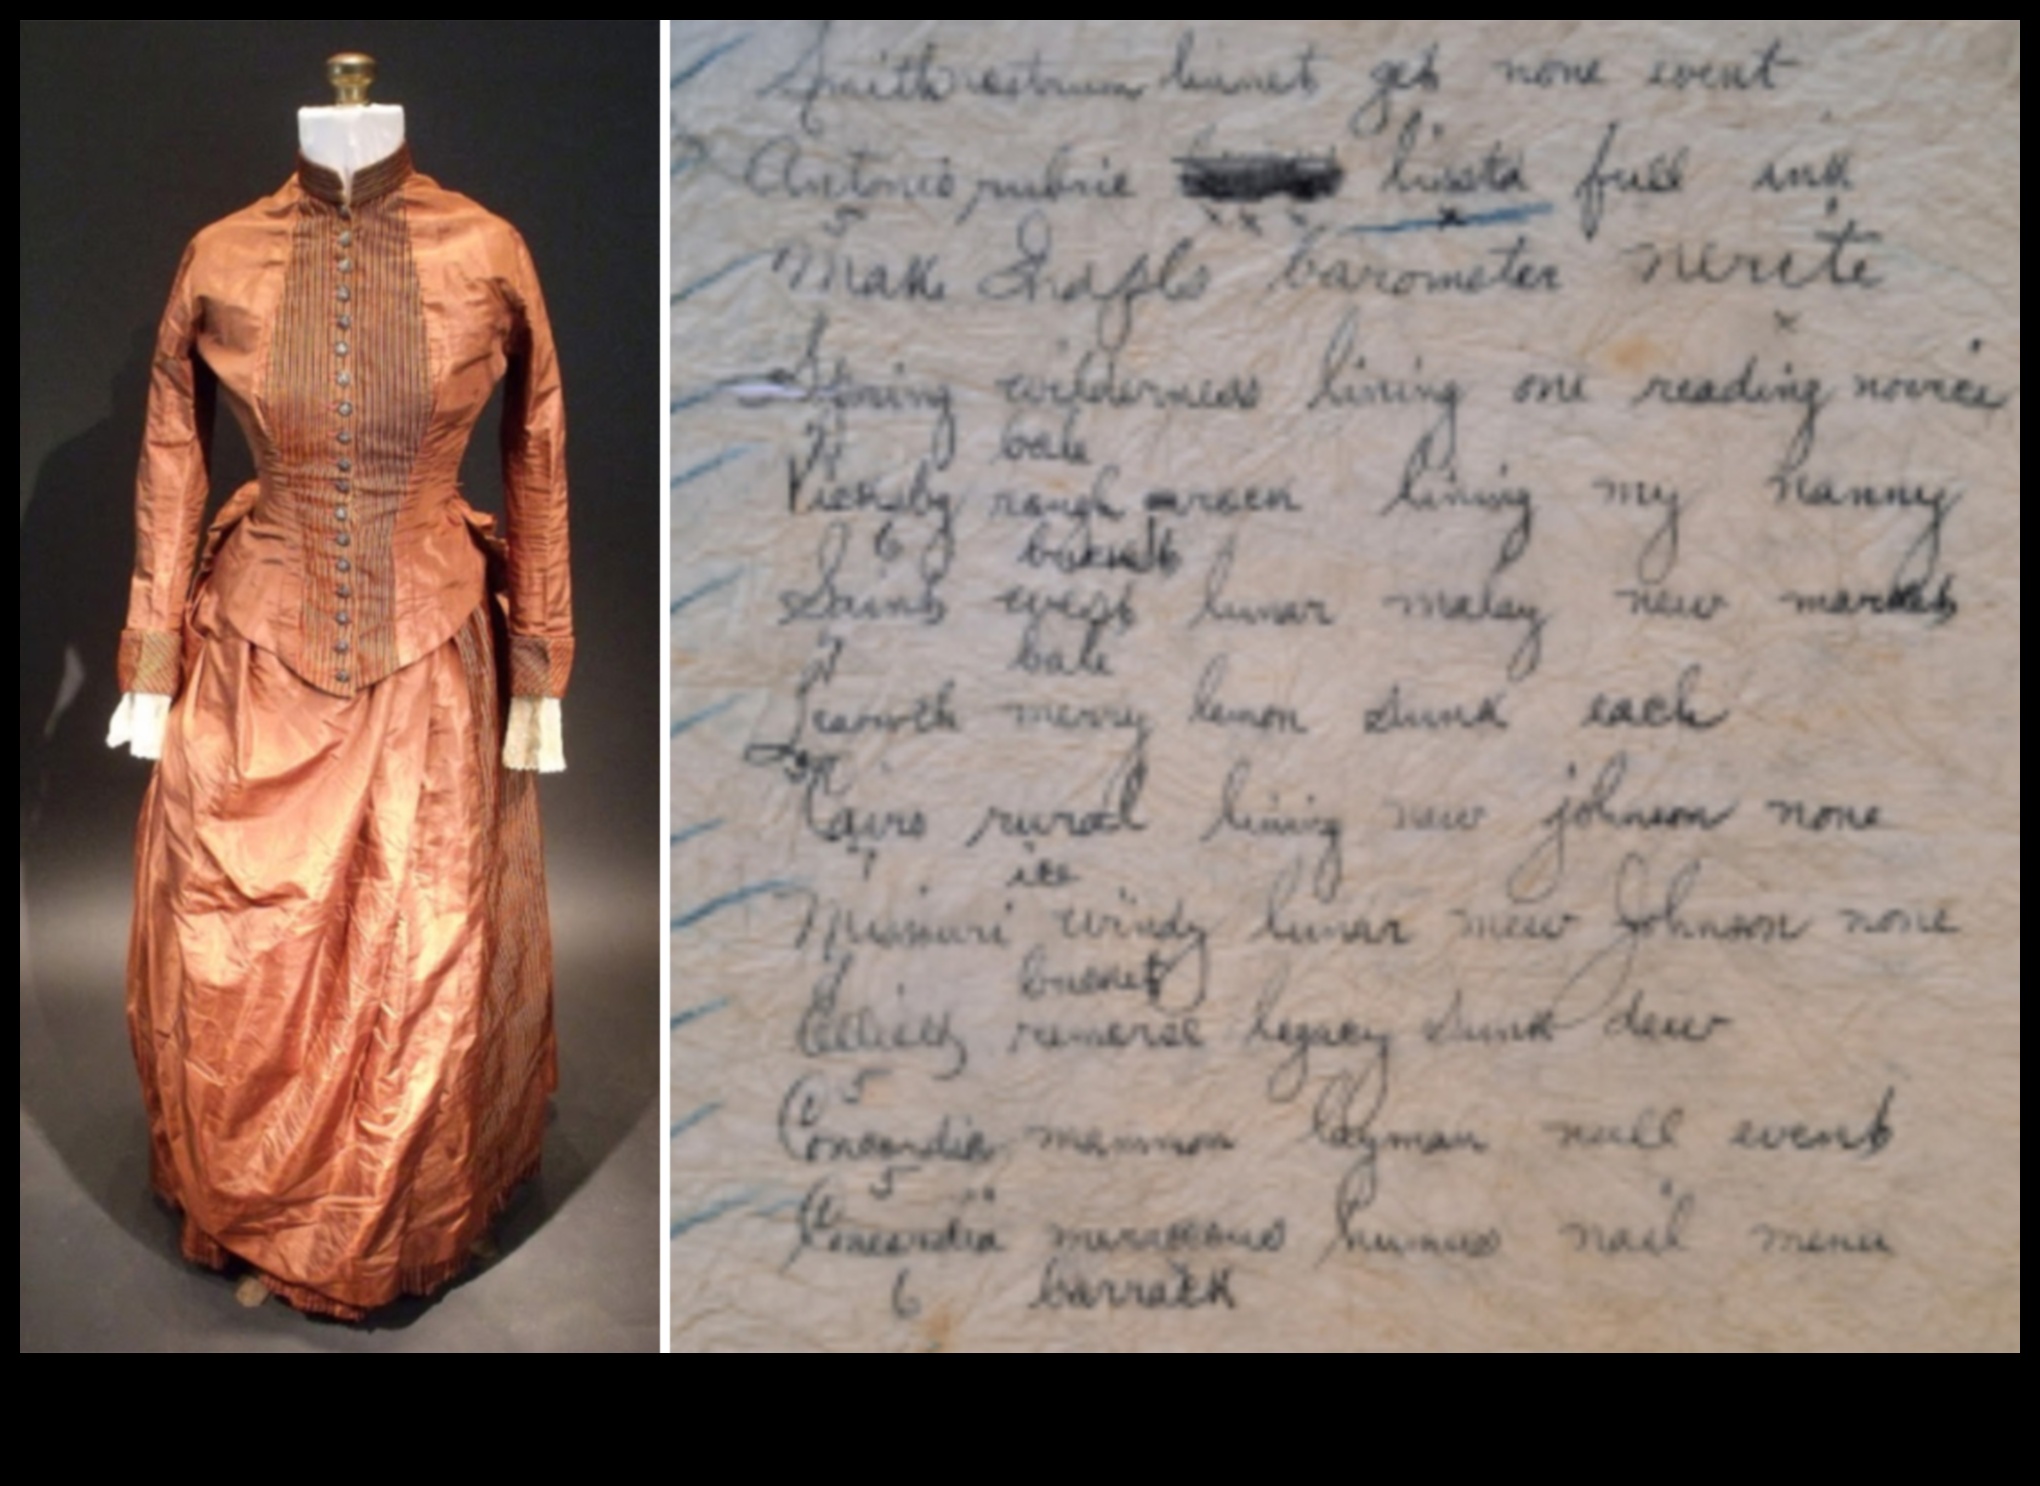 Smith nostrum linnet get none event
Antonio rubric lissta full ink
5 x x x x
Make Indpls barometer nerite
x
Spring wilderness lining one reading novice
bale
Vicksbg rough rack lining my nanny
6 bucket
Saints west lunar malay new market
7 bale
Leavwth merry lemon sunk each
Cairo rural lining new johnson none
ice
Missouri windy lunar mew Johnson none
bucket
remorse legacy sunk dew
5
Concordia mammon layman null event
5
Concordia merraccous humus nail menu
6 barrack